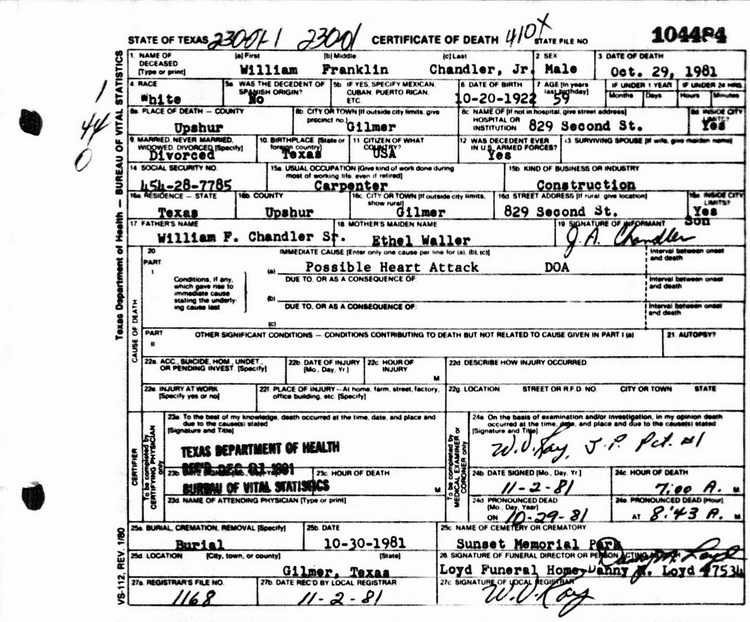 STATE OF TEXAS 23001-1 23001 CERTIFICATE OF DEATH 410X STATE FILE NO 104484
1. NAME OF DECEASED [Type or print] (a) First (b) Middle (c) Last 2 SEX 3 DATE OF DEATH
William Franklin Chandler, Jr. Male Oct. 29, 1981
4. RACE 5a WAS THE DECEDENT OF SPANISH ORIGIN? 5b IF YES, SPECIFY MEXICAN, CUBAN, PUERTO RICAN, ETC. 6 DATE OF BIRTH 7 AGE [In years last birthday] IF UNDER 1 YEAR Months Days IF UNDER 24 HRS Hours Minutes
White No 10-20-1922 59
8a PLACE OF DEATH — COUNTY 8b. CITY OR TOWN [If outside city limits, give precinct no.] 8c NAME OF [If not in hospital, give street address] HOSPITAL OR INSTITUTION 8d INSIDE CITY LIMITS?
Upshur Gilmer 829 Second St. Yes
9 MARRIED NEVER MARRIED, WIDOWED, DIVORCED [Specify] 10. BIRTHPLACE [State or foreign country] 11 CITIZEN OF WHAT COUNTRY? 12 WAS DECEDENT EVER IN U.S. ARMED FORCES? 13 SURVIVING SPOUSE [If wife, give maiden name]
Divorced Texas USA Yes
14 SOCIAL SECURITY NO. 15a USUAL OCCUPATION [Give kind of work done during most of working life, even if retired] 15b. KIND OF BUSINESS OR INDUSTRY
454-28-7785 Carpenter Construction
16a RESIDENCE — STATE 16b COUNTY 16c. CITY OR TOWN [If outside city limits, show rural] 16d STREET ADDRESS [If rural give location] 16e INSIDE CITY LIMITS?
Texas Upshur Gilmer 829 Second St. Yes
17 FATHER'S NAME 18 MOTHER'S MAIDEN NAME 19 SIGNATURE OF INFORMANT Son
William F. Chandler Sr. Ethel Waller J. A. Chandler
20 IMMEDIATE CAUSE [Enter only one cause per line for (a), (b), (c)] Interval between onset and death
PART I
(a) Possible Heart Attack DOA
Conditions, if any, which gave rise to immediate cause stating the underlying cause last
DUE TO, OR AS A CONSEQUENCE OF: Interval between onset and death
(b)
DUE TO, OR AS A CONSEQUENCE OF: Interval between onset and death
(c)
PART II OTHER SIGNIFICANT CONDITIONS — CONDITIONS CONTRIBUTING TO DEATH BUT NOT RELATED TO CAUSE GIVEN IN PART I (a) 21. AUTOPSY?
22a. ACC., SUICIDE, HOM., UNDET., OR PENDING INVEST. [Specify] 22b DATE OF INJURY [Mo., Day, Yr.] 22c HOUR OF INJURY M 22d DESCRIBE HOW INJURY OCCURRED
22e. INJURY AT WORK [Specify yes or no] 22f. PLACE OF INJURY—At home, farm, street, factory, office building, etc. [Specify] 22g. LOCATION STREET OR R.F.D. NO CITY OR TOWN STATE
23a To the best of my knowledge, death occurred at the time, date, and place and due to the cause(s) stated [Signature and Title]
24a On the basis of examination and/or investigation, in my opinion death occurred at the time, date, and place and due to the cause(s) stated [Signature and Title]
W. V. Ray, J. P. Pct. #1
TEXAS DEPARTMENT OF HEALTH
REC'D DEC 03 1981
BUREAU OF VITAL STATISTICS
23b 23c HOUR OF DEATH M
23d NAME OF ATTENDING PHYSICIAN [Type or print]
24b DATE SIGNED [Mo., Day, Yr.] 24c HOUR OF DEATH
11-2-81 7:00 A. M
24d PRONOUNCED DEAD [Mo., Day, Year] 24e PRONOUNCED DEAD [Hour]
ON 10-29-81 AT 8:43 A. M
25a BURIAL, CREMATION, REMOVAL [Specify] 25b. DATE 25c NAME OF CEMETERY OR CREMATORY
Burial 10-30-1981 Sunset Memorial Park
25d LOCATION [City, town, or county] [State] 26 SIGNATURE OF FUNERAL DIRECTOR OR PERSON ACTING AS SUCH
Gilmer, Texas Loyd Funeral Home Danny M. Loyd #7534
27a. REGISTRAR'S FILE NO. 27b DATE REC'D BY LOCAL REGISTRAR 27c SIGNATURE OF LOCAL REGISTRAR
1168 11-2-81 W. V. Ray
VS-112, REV. 1/80
Texas Department of Health — BUREAU OF VITAL STATISTICS
CAUSE OF DEATH
CERTIFIER
To be completed by CERTIFYING PHYSICIAN only
To be completed by MEDICAL EXAMINER or CORONER only
1
44
0